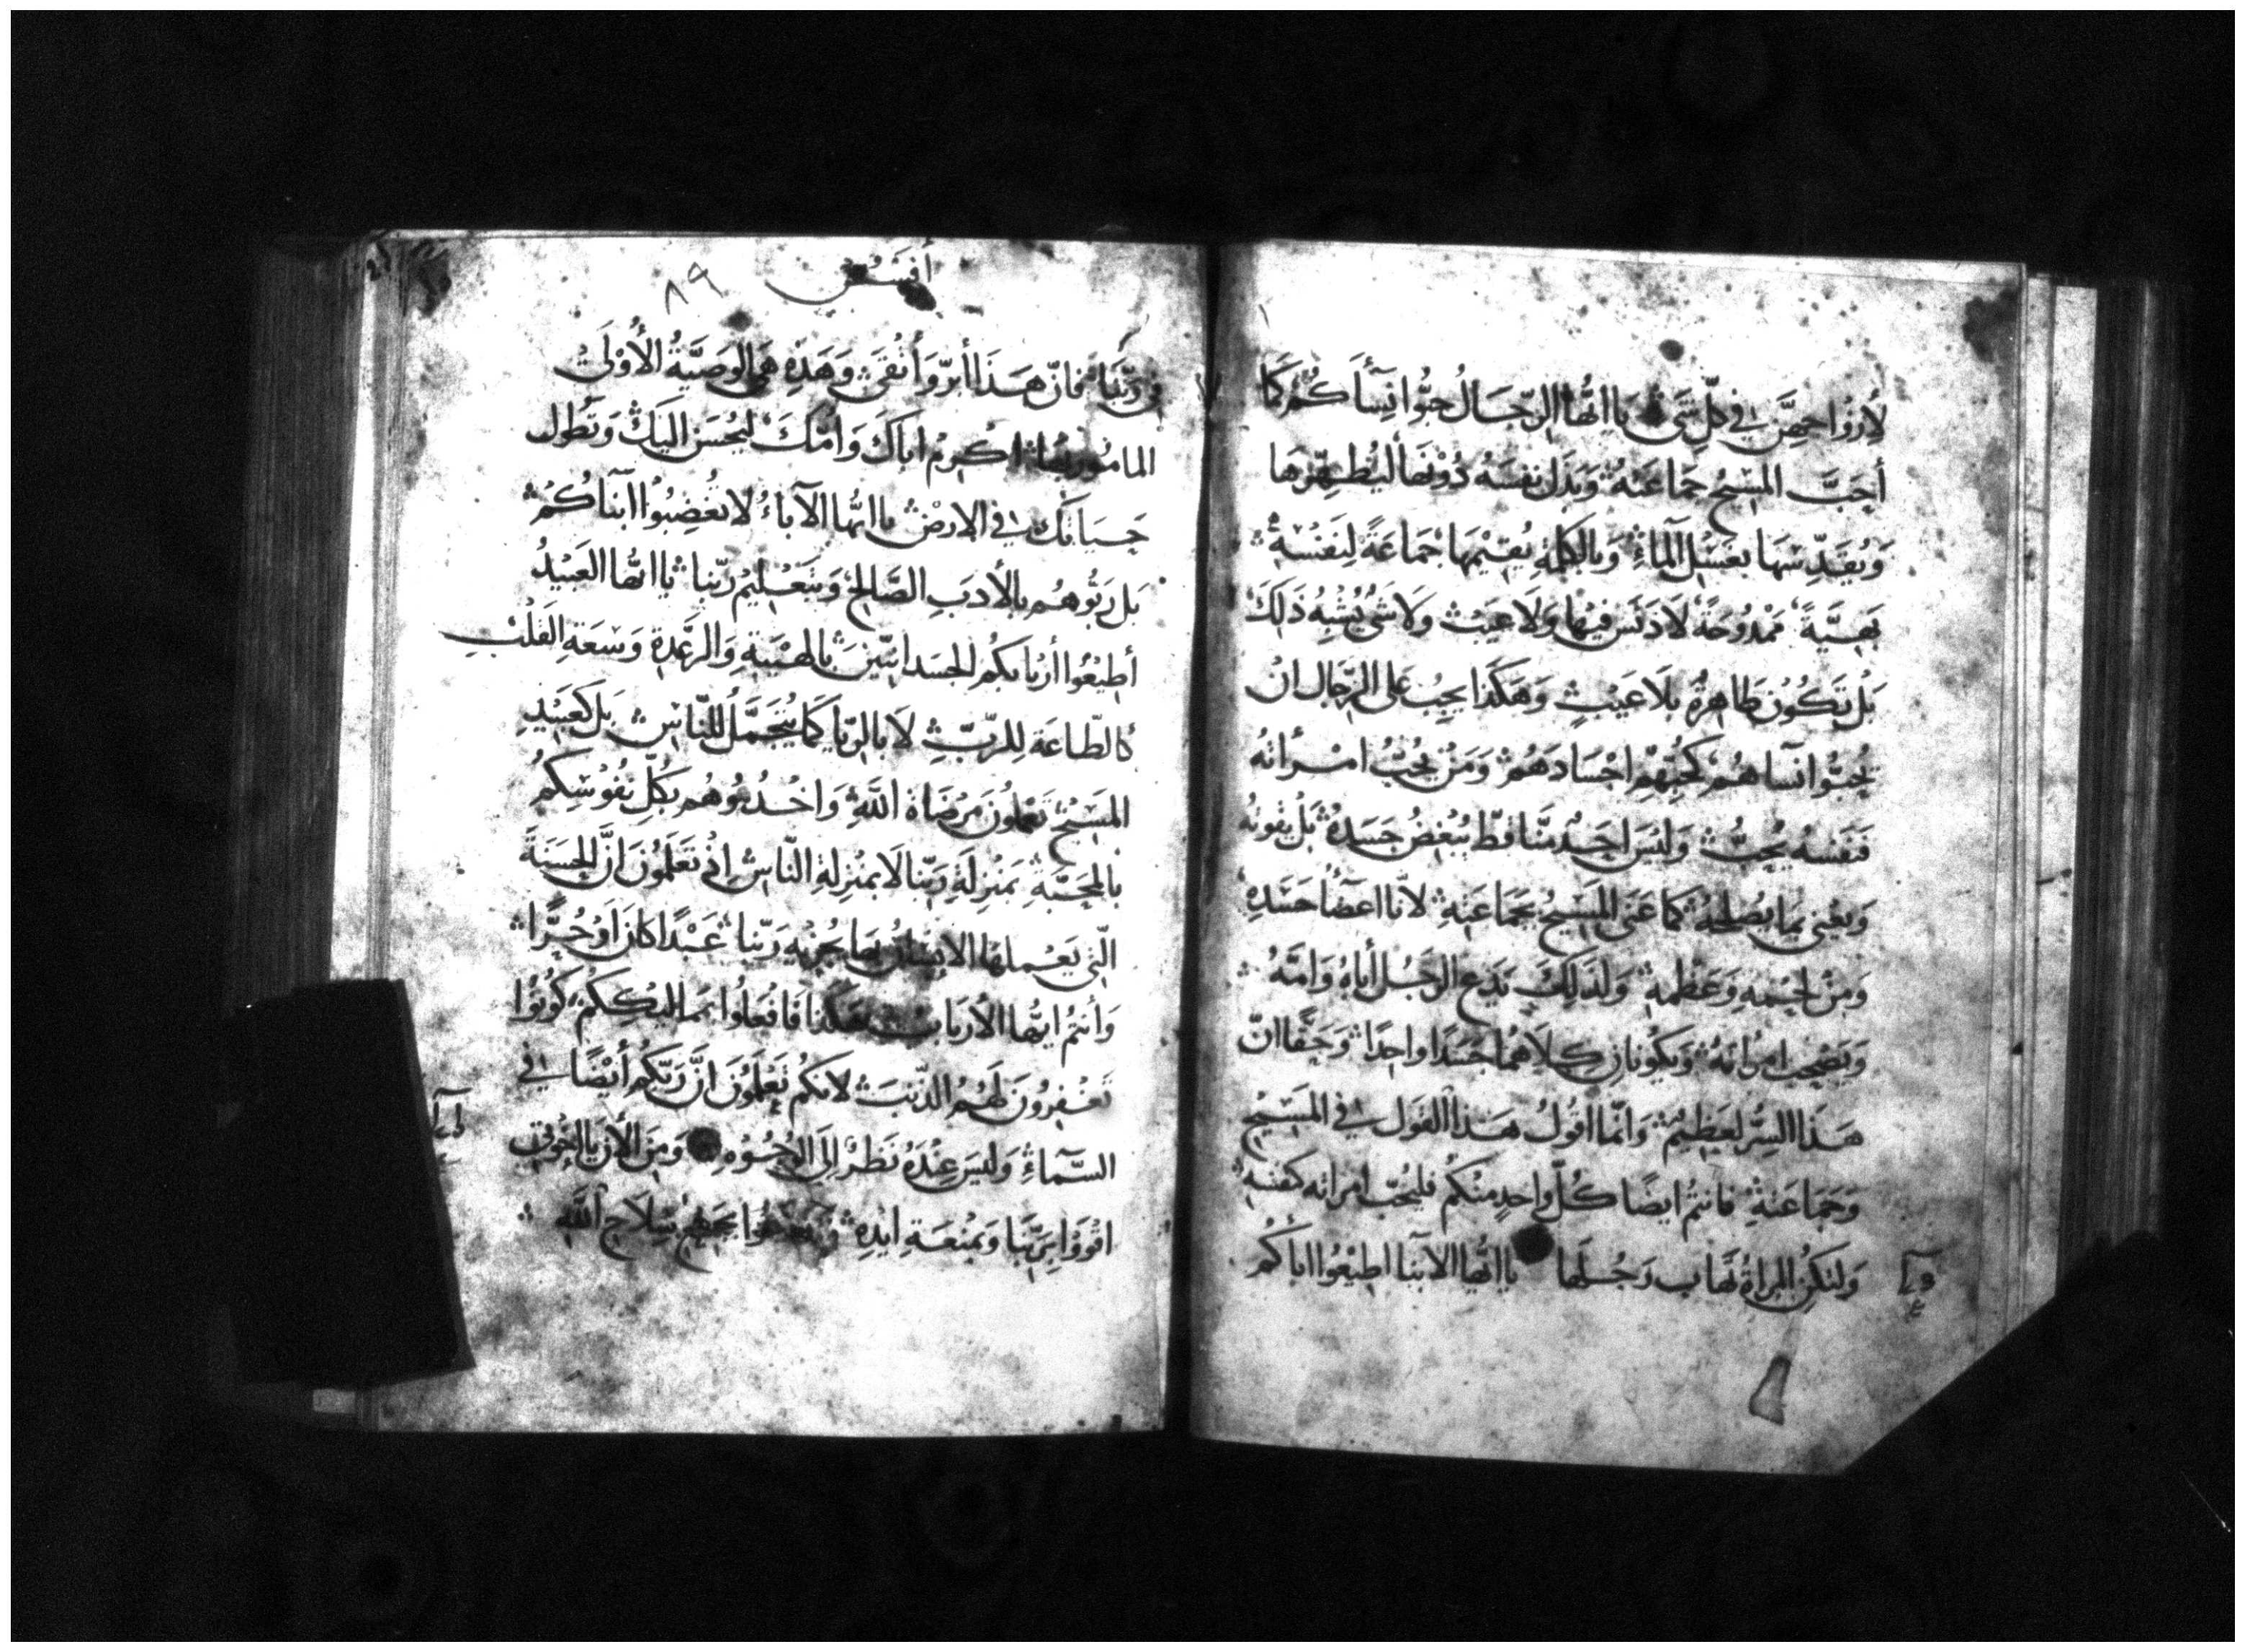 لازواجهِنَّ في كلّ شَىءٍ يا ايُّها الرّجَالُ حبُّوا نِسَآءَكُم كَمَا
أحَبَّ المسِيحُ جَمَاعَتهُ وَبَذَلَ نفسَهُ دُونَهَا ليُطَهّرِهَا
وَيُقَدِّسَهَا بغَسْل المآءِ وَبالكلِمَةِ يُقيمُهَا جمَاعَةً لِنَفسِهِ
بَهيَّةً مَمدُوحَةً لَا دَنَسَ فِيهَا وَلَا عَيبَ وَلَا شَى يُشبِهُ ذَلِكَ
بَلْ تَكُوُن طاهِرَةً بلَا عَيْبٍ وَهَكَذا يجِبُ على الرّجَال انْ
يُحبّوا نسَاهُمْ كحُبّهِمْ اجْسَادَهُمْ وَمَنْ يُحِبُّ امْرأتهُ
فَنَفسَهُ يُحِبُّ وَليسَ احَدٌ منَّا قطّ يُبْغِضُ جَسَدَهُ بَلْ يقوتُهُ
وَيعْنى بمَا يصُلِحهُ كما عَنَى المسِيحُ بجَمَاعَتهِ لانّا اعضَآءُ جَسَدِهِ
وَمِنْ لحْمِهِ وَعَظمِهِ وَلذَلِكَ يَدَعُ الرجُلُ أباهُ وَامَّهُ
وَيَصْحَب امرَاتهُ وَيكُونانِ كِلَاهُمَا جَسَدًا واحِدًا وَحَقًا انّ
هَذا السِّر لعَظِيمٌ وَانّما اقولُ هَذا القول في المسِيحِ
وَجَمَاعَتهِ فانتمُ ايضًا كُلّ واحِدٍ منكُم فليُحبّ امرَاته كنفسِهِ
وَلتكنِ المراةُ تهَاب رَجُلَهَا يا ايُّها الابنا اطيعُوا اباكُم
أفسُس
٨٩
فى رَبّنا فانّ هَذا أبرّ وَأنقَى وَهَذِهِ هِىَ الوَصيَّةُ الأوْلَى
المامُور بها اكرِمْ اباكَ وَامّكَ ليُحْسَن اليكَ وَتطُول
حيَاتكَ في الارضِ يا ايُّها الآباءُ لا تُغضِبُوا ابنآكُم
بَل رَبّوهُم بالأدَبِ الصَّالح وَبتَعْليم رَبّنا يا ايُّها العَبيدُ
أطيعُوا أربَابكُم الجسَدَانيّينَ بالهَيبَةِ وَالرعْدَةِ وَسَعَةِ القَلْبِ
كالطّاعَة لِلرّبّ لا بالرّيا كمَا يُتَجَمَّلُ للنّاسِ بَل كعَبيدِ
المسِيحِ تعْملُونَ مَرْضاةَ اللَّهِ وَاخدُمُوهُم بكُلِّ نفُوسِكُم
بالمحبَّةِ بمَنزِلَةِ رَبّنا لا بمَنزِلةِ النّاسِ اذْ تَعْلَمُونَ انَّ الحسَنةَ
الّتي يَعْملهَا الانسانُ بهَا يجُزيهِ رَبّنا عَبْدًا كانَ اوْ حُرًّا
وَأنتمُ ايّهَا الأربَابُ هَكذا فافعَلُوا بمَماليْكِكُم كونُوا
تَغفِرُونَ لَهُمُ الذّنبَ لانكُم تَعْلَمُونَ انَّ رَبّكُم أيْضًا في
السّمآءِ وَليسَ عِنْدَهُ نَظَرٌ إلى الوُجُوهِ وَمِنَ الأنَ يا اخوَتى
اقوَوْا برَبّنا وَبمَنعَةِ ايْدِهِ سِلَاحِ اللَّهِ